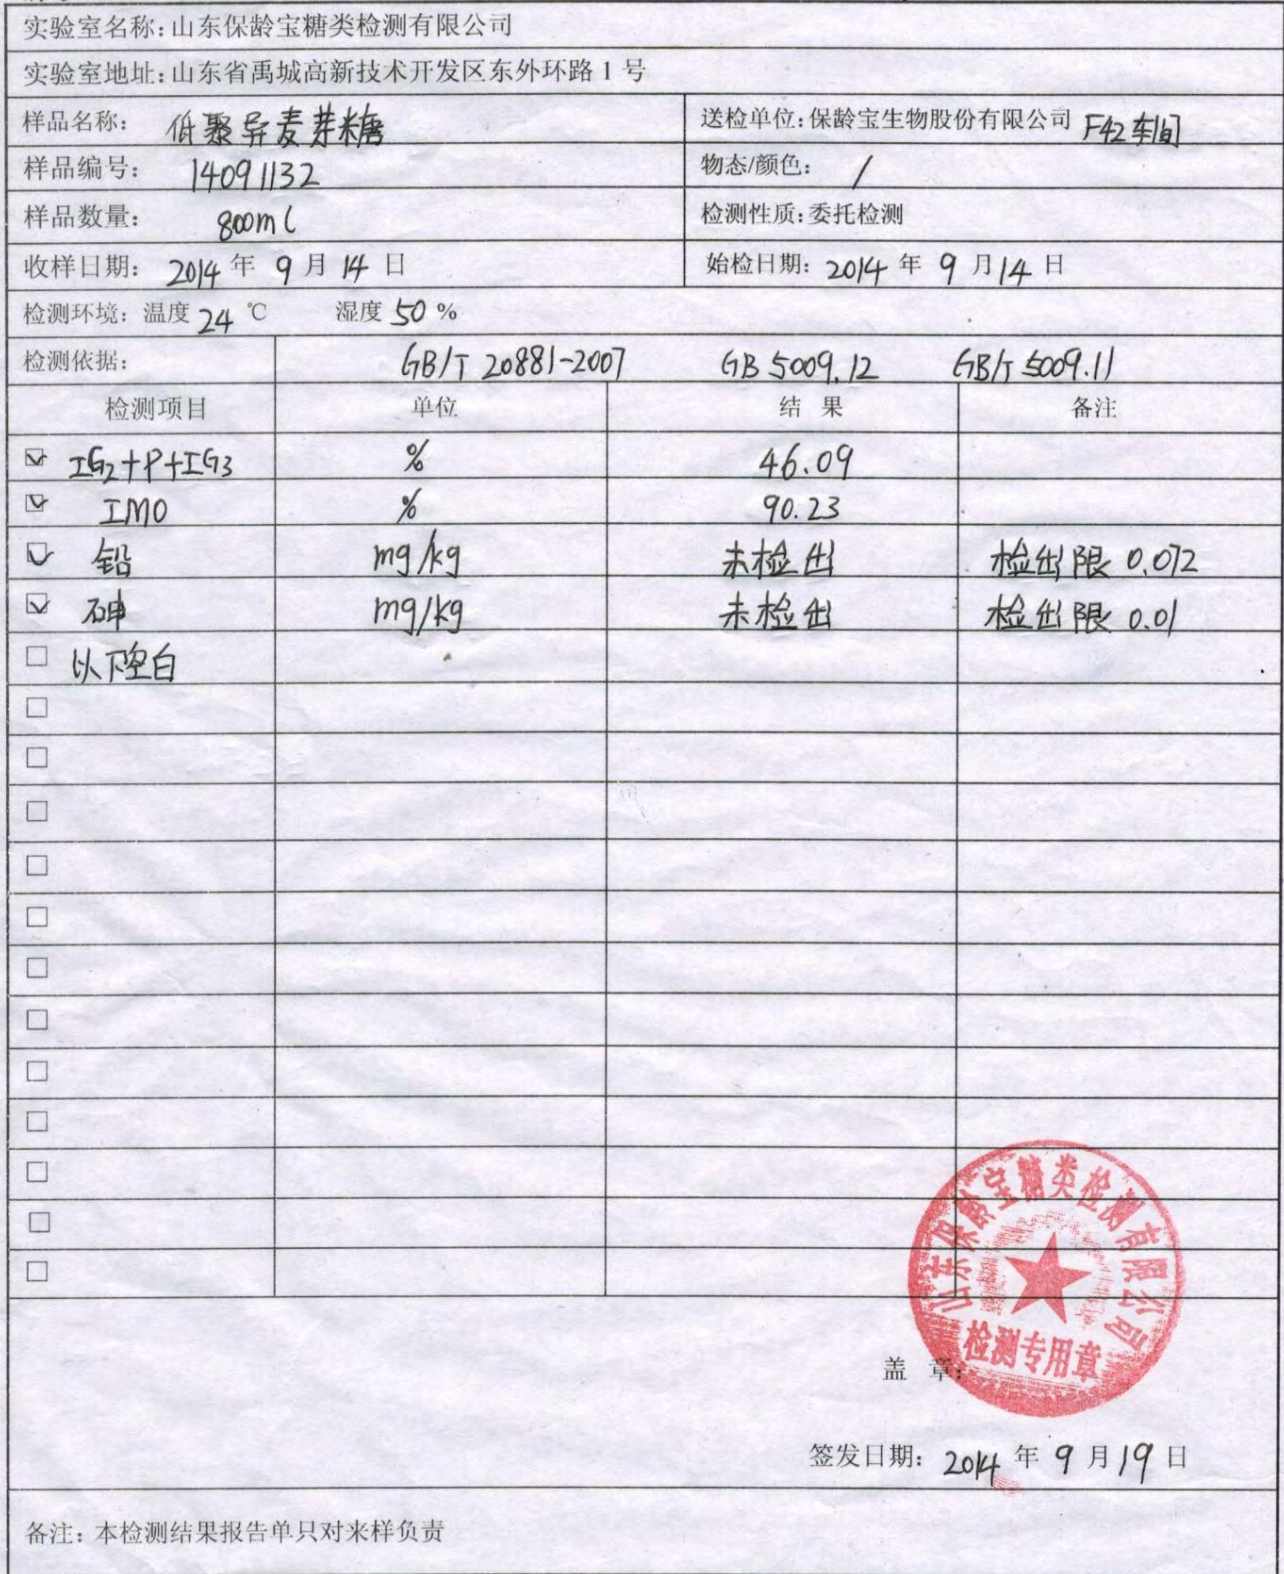 实验室名称:山东保龄宝糖类检测有限公司
实验室地址:山东省禹城高新技术开发区东外环路1号
样品名称: 低聚异麦芽糖 送检单位:保龄宝生物股份有限公司 F42车间
样品编号: 14091132 物态/颜色: /
样品数量: 800ml 检测性质:委托检测
收样日期: 2014年9月14日 始检日期: 2014年9月14日
检测环境: 温度24℃ 湿度50%
检测依据: GB/T 20881-2007 GB 5009.12 GB/T 5009.11
检测项目 单位 结果 备注
☑ IG2+P+IG3 % 46.09
☑ IMO % 90.23
☑ 铅 mg/kg 未检出 检出限 0.072
☑ 砷 mg/kg 未检出 检出限 0.01
□ 以下空白
□
□
□
□
□
□
□
□
□
□
□
□
山东保龄宝糖类检测有限公司
检测专用章
盖 章:
签发日期: 2014年9月19日
备注: 本检测结果报告单只对来样负责